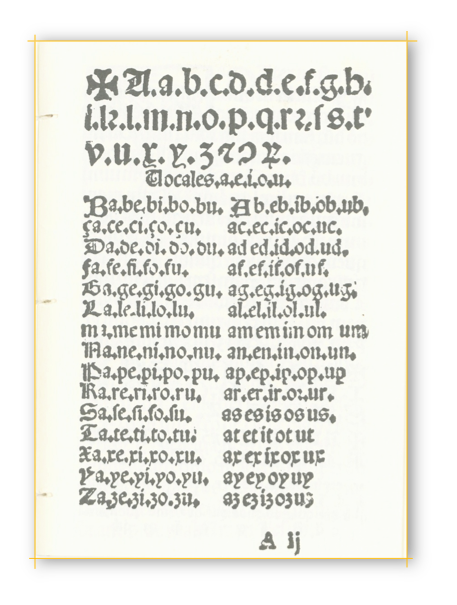 ✠ A.a.b.c.d.d.e.f.g.h.
i.k.l.m.n.o.p.q.r.ꝛ.ſ.s.t.
v.u.x.y.z
Vocales.a.e.i.o.u.
Ba.be.bi.bo.bu. Ab.eb.ib.ob.ub.
ça.ce.ci.ço.çu. ac.ec.ic.oc.uc.
Da.de.di.do.du. ad ed.id.od.ud.
fa.fe.fi.fo.fu. af.ef.if.of.uf.
Ga.ge.gi.go.gu. ag.eg.ig.og.ug.
La.le.li.lo.lu. al.el.il.ol.ul.
ma.me mi mo mu am em im om um
Na.ne.ni.no.nu. an.en.in.on.un.
Pa.pe.pi.po.pu. ap.ep.ip.op.up
Ra.re.ri.ro.ru. ar.er.ir.or.ur.
Sa.ſe.ſi.ſo.ſu. as es is os us.
Ta.te.ti.to.tu. at et it ot ut
Xa.xe.xi.xo.xu. ax ex ix ox ux
Ya.ye.yi.yo.yu. ay ey oy uy
Za.ze.zi.zo.zu. az ez iz oz uz
A ij